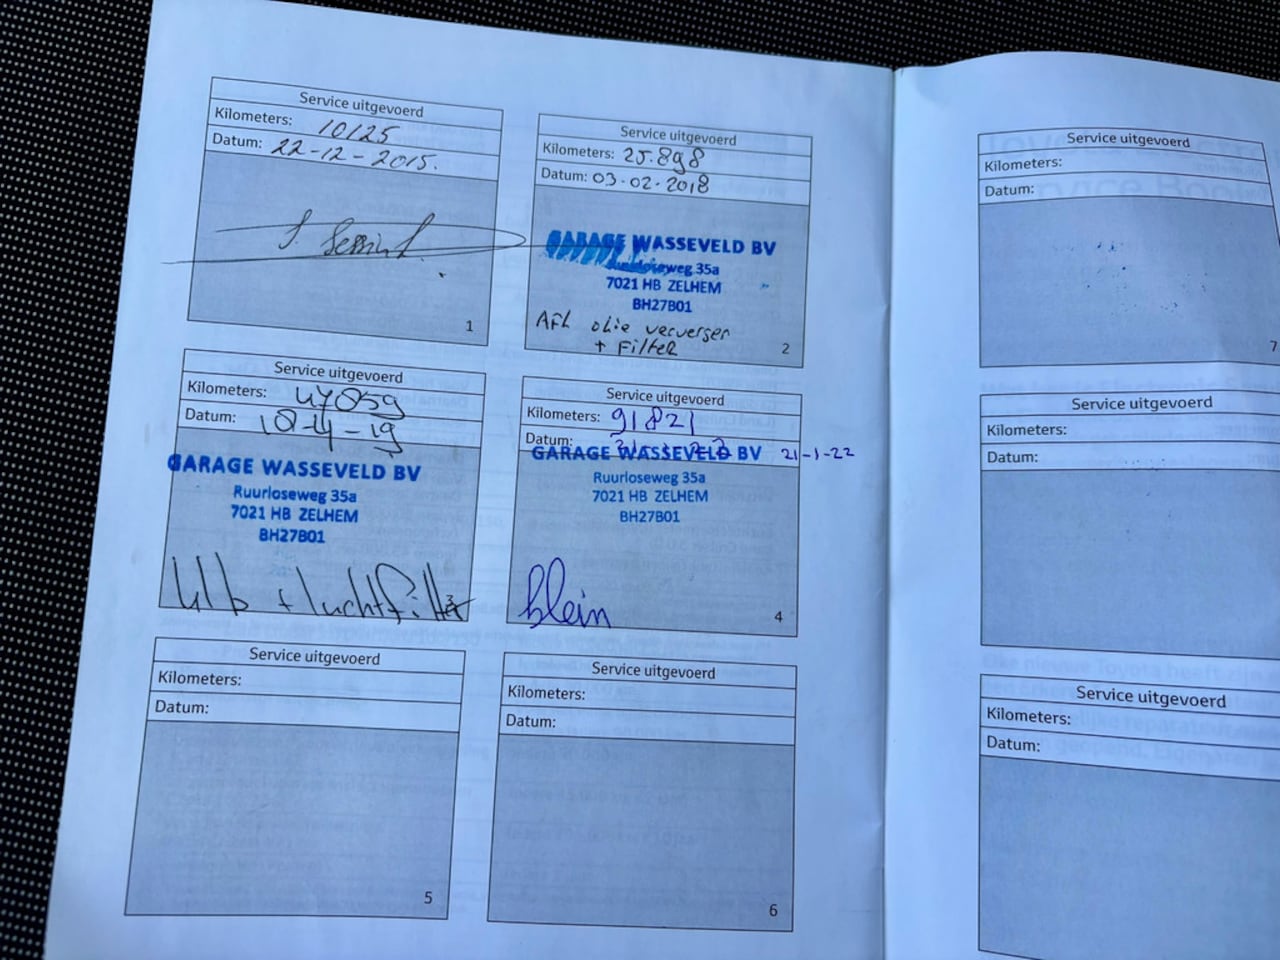 Service uitgevoerd
Kilometers: 10125
Datum: 22-12-2015.
1
Service uitgevoerd
Kilometers: 25.898
Datum: 03-02-2018
GARAGE WASSEVELD BV
Ruurloseweg 35a
7021 HB ZELHEM
BH27B01
AFL olie verversen
+ Filter
2
Service uitgevoerd
Kilometers: 47059
Datum: 18-4-19
GARAGE WASSEVELD BV
Ruurloseweg 35a
7021 HB ZELHEM
BH27B01
+ luchtfilter
3
Service uitgevoerd
Kilometers: 91821
Datum:
GARAGE WASSEVELD BV 21-1-22
Ruurloseweg 35a
7021 HB ZELHEM
BH27B01
klein
4
Service uitgevoerd
Kilometers:
Datum:
5
Service uitgevoerd
Kilometers:
Datum:
6
Service uitgevoerd
Kilometers:
Datum:
7
Service uitgevoerd
Kilometers:
Datum:
Service uitgevoerd
Kilometers:
Datum: